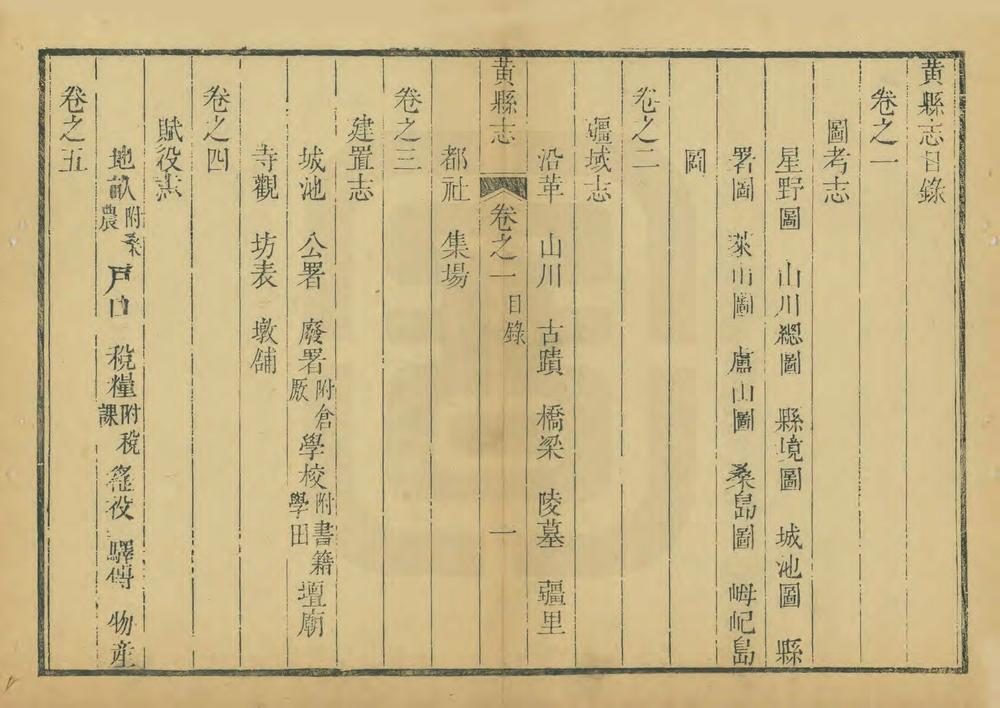 黃縣志目錄
卷之一
圖考志
星野圖 山川總圖 縣境圖 城池圖 縣
署圖 萊山圖 盧山圖 桑島圖 㟂屺島
圖
卷之二
疆域志
沿革 山川 古蹟 橋梁 陵墓 疆里
黃縣志 卷之一 目錄 一
都社 集場
卷之三
建置志
城池 公署 廢署 附倉厫 學校 附書籍學田 壇廟
寺觀 坊表 墩舖
卷之四
賦役志
地畝 附桑農 戶口 稅糧 附稅課 徭役 驛傳 物產
卷之五